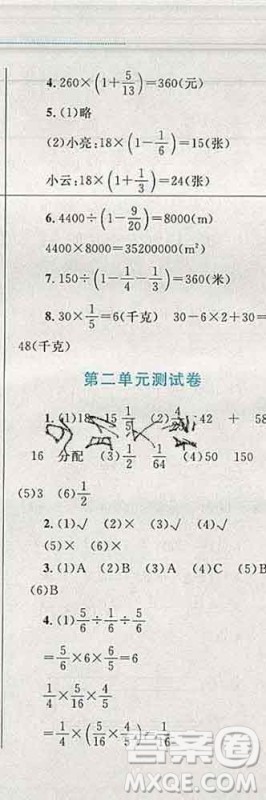 4. 260×(1+5/13)=360(元)
5. (1)略
(2)小亮:18×(1-1/6)=15(张)
小云:18×(1+1/3)=24(张)
6. 4400÷(1-9/20)=8000(m)
4400×8000=35200000(m²)
7. 150÷(1-1/4-1/3)=360(米)
8. 30×1/5=6(千克) 30-6×2+30=
48(千克)
第二单元测试卷
1. (1)18 15 1/5 (2) 42 + 58
16 分配 (3)1/2 1/64 (4)50 150
(5)3 (6)1/2
2. (1)√ (2)× (3)√ (4)√
(5)× (6)×
3. (1)A (2)B (3)A (4)C (5)B
(6)B
4. (1)5/6÷1/6÷5/6
=5/6×6×6/5=6
1/4×5/16×4/5
=1/4×(5/16×4/5)=1/16
答案圈
MXQE.COM